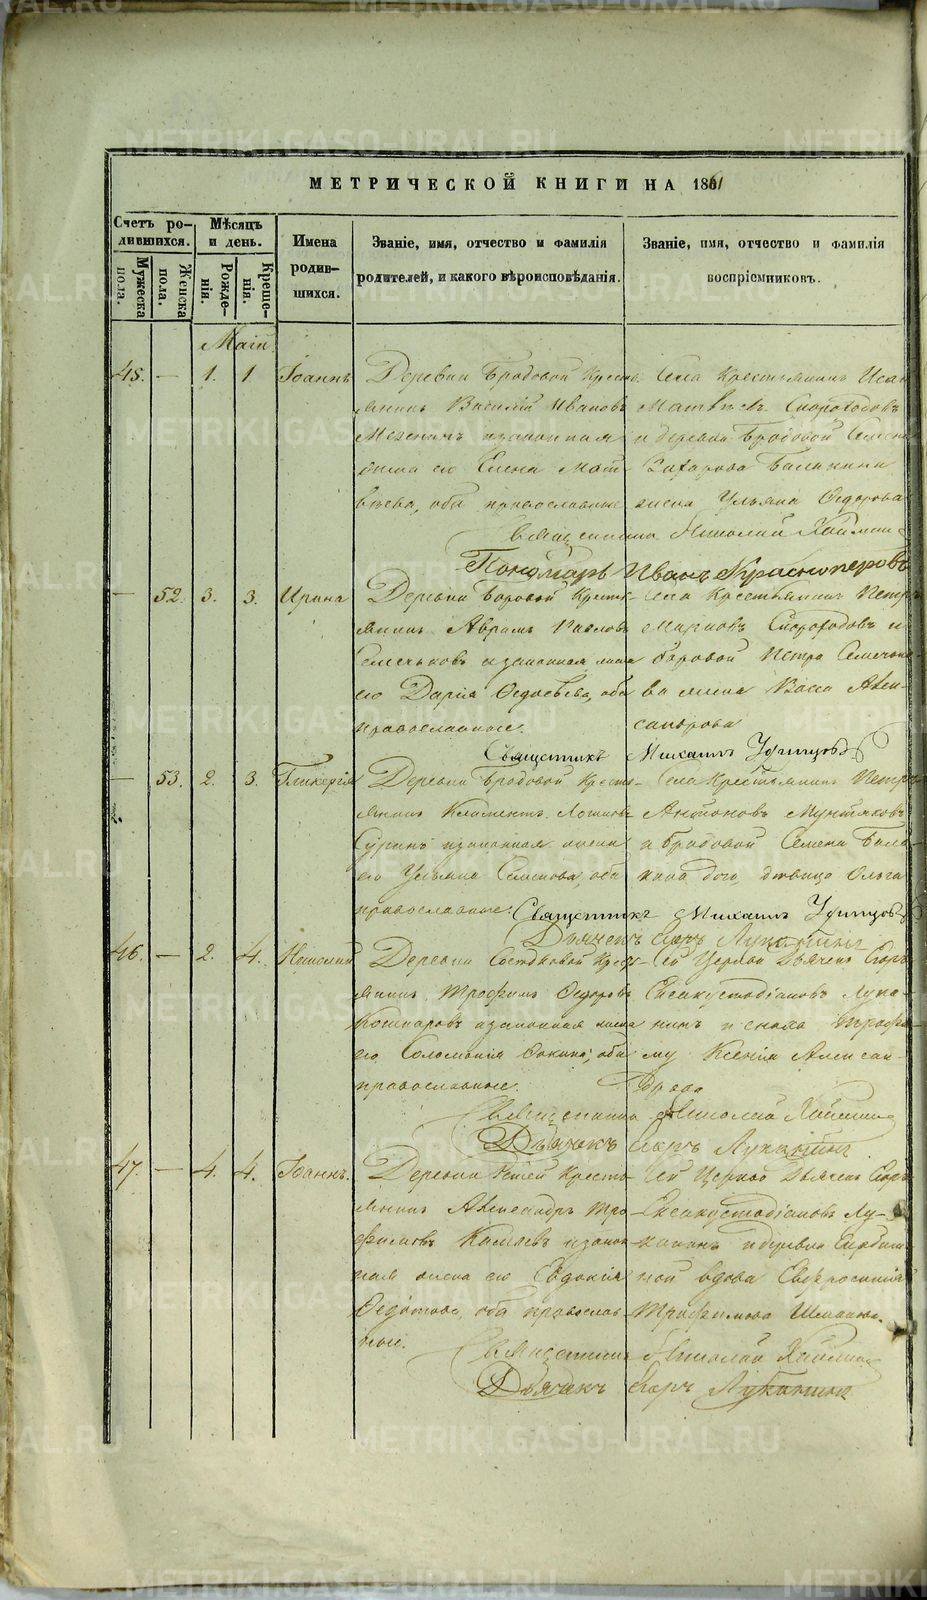 МЕТРИЧЕСКОЙ КНИГИ НА 1861
Счетъ ро-
дившихся.
Мужеска
пола.
Женска
пола.
Мѣсяцъ
и день.
Рожде-
нія.
Креще-
нія.
Имена
родив-
шихся.
Званіе, имя, отчество и фамилія
родителей, и какого вѣроисповѣданія.
Званіе, имя, отчество и фамилія
воспріемниковъ.
Маій
45. — 1. 1 Іоаннъ
Деревни Бродовой Кресть-
янинъ Василій Ивановъ
и законная
жена его Елена Мат-
вѣева, оба православные
Села Крестьянинъ Исаа
Матвѣевъ Скороходовъ
и деревни Бродовой Семена
Захарова Балакина
жена Ульяна Ѳедорова
Священникъ Николай
Пономарь Иванъ Красноперовъ
— 52. 3. 3. Ирина
Деревни Боровой Кресть-
янинъ Аврамъ Павловъ
Семечковъ и законная жена
его Дарія Ѳедосѣева, оба
православные.
Села Крестьянинъ Петръ
Марковъ Скороходовъ и
Боровой Петра Семечко-
ва жена Васса Алек-
сандрова
Священникъ Михаилъ Удинцовъ
— 53. 2. 3 Гликерія
Деревни Бродовой Кресть-
янинъ Климентъ
Суринъ и законная жена
его Ульяна Семенова, оба
православные.
Села Крестьянинъ Петръ
Антоновъ
и Бродовой Семена Бала-
кина дочь, дѣвица Ольга
Священникъ Михаилъ Удинцовъ
Дьячекъ Егоръ Луканинъ
46. — 2. 4. Николай
Деревни Кресть-
янинъ Трофимъ Ѳедоровъ
Кошкаровъ и законная жена
его Соломонія Фокина, оба
православные.
Сей Церкви Дьячекъ Егоръ
Евсакустодіановъ Лука-
нинъ и сноха Трофи-
му Ксенія Алексан-
дрова
Священникъ Николай
Дьячекъ Егоръ Луканинъ
47. — 4. 4. Іоаннъ.
Деревни Кресть-
янинъ Александръ Тро-
фимовъ Камаевъ и закон-
ная жена его Евдокія
Ѳедотова, оба православ-
ные.
Сей Церкви Дьячекъ Егоръ
Евсакустодіановъ Лу-
канинъ и деревни
ной вдова Евфросинія
Трофимова
Священникъ Николай
Дьячекъ Егоръ Луканинъ
METRIKI.GASO-URAL.RU